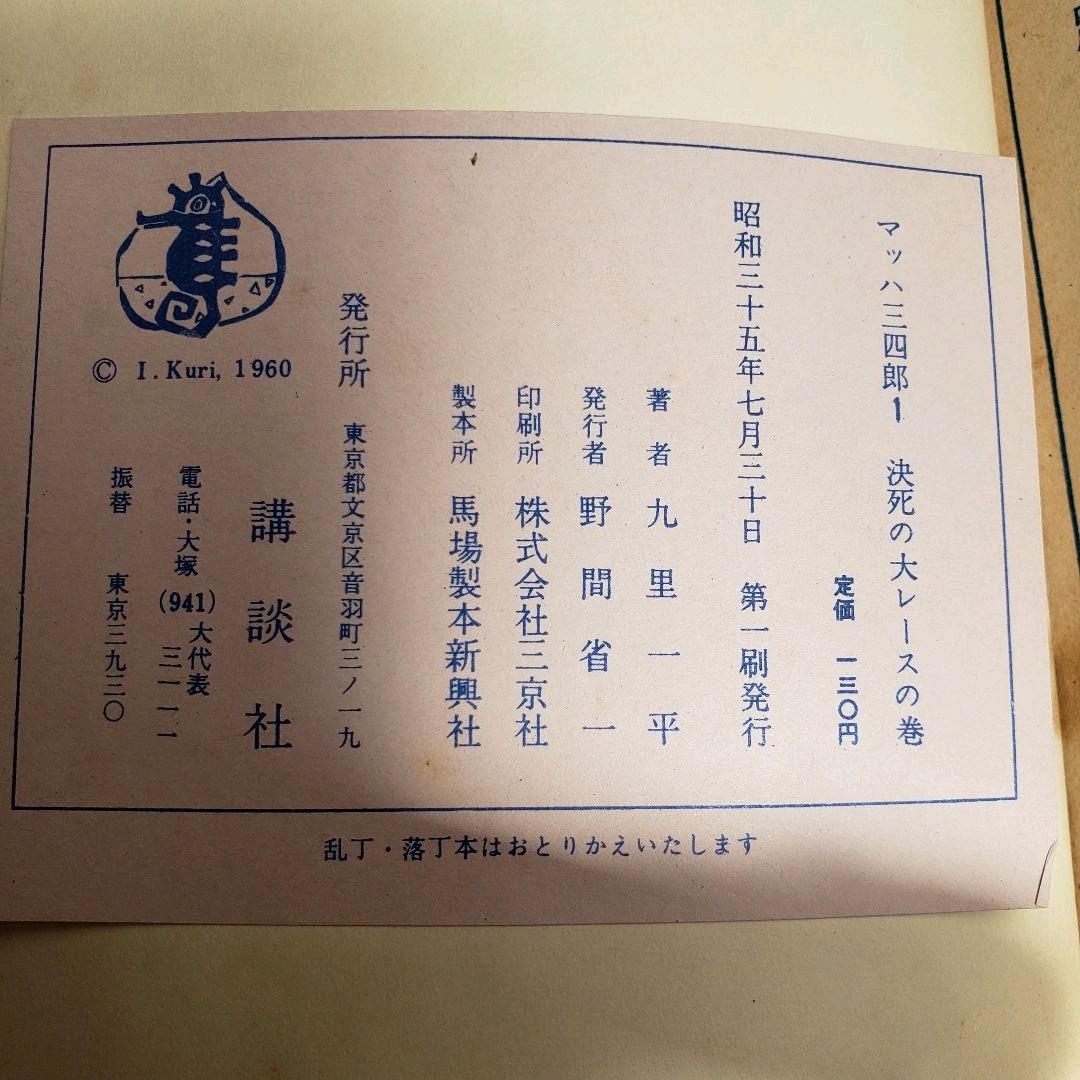 マッハ三四郎1　決死の大レースの巻
定価　一三〇円
昭和三十五年七月三十日　第一刷発行
著者　九里一平
発行者　野間省一
印刷所　株式会社三京社
製本所　馬場製本新興社
発行所　東京都文京区音羽町三ノ一九
講談社
電話・大塚(941)大代表三一一一
振替　東京三九三〇
© I. Kuri, 1960
乱丁・落丁本はおとりかえいたします